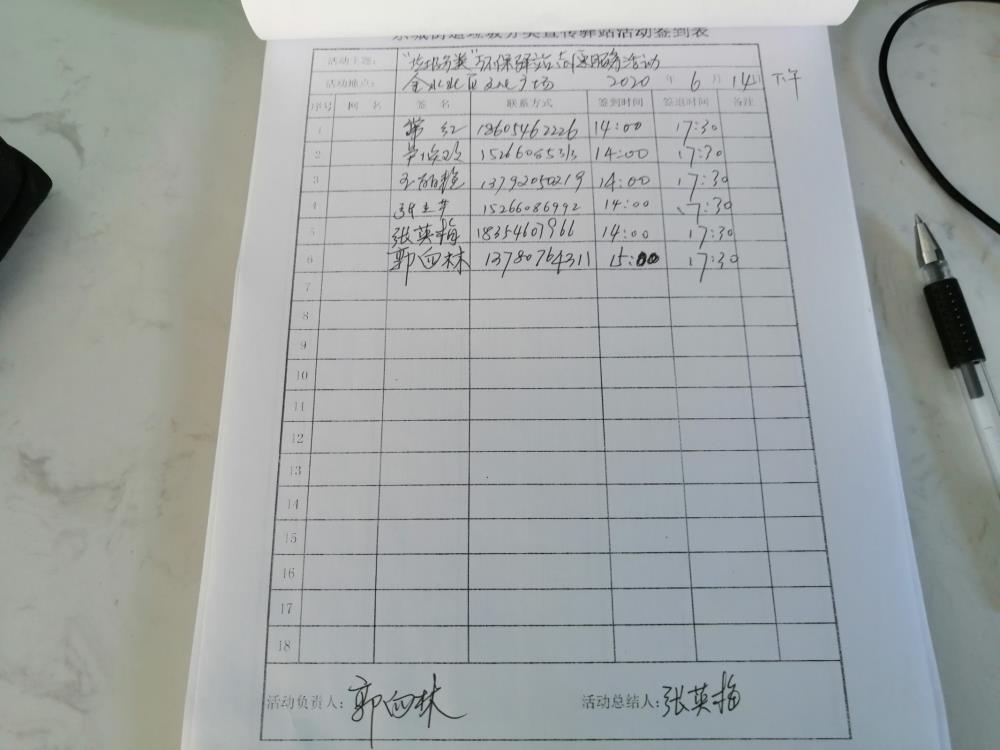 东城街道垃圾分类宣传驿站活动签到表
活动主题： "垃圾分类"环保驿站志愿服务活动
活动地点： 金水北区文化广场 2020 年 6 月 14日 下午
序号 网 名 签 名 联系方式 签到时间 签退时间 备注
1 红 18605462226 14:00 17:30
2 14:00 17:30
3 13792050219 14:00 17:30
4 15266086992 14:00 17:30
5 张英梅 18354607966 14:00 17:30
6 郭向林 13780764311 15:00 17:30
7
8
9
10
11
12
13
14
15
16
17
18
活动负责人：郭向林 活动总结人：张英梅